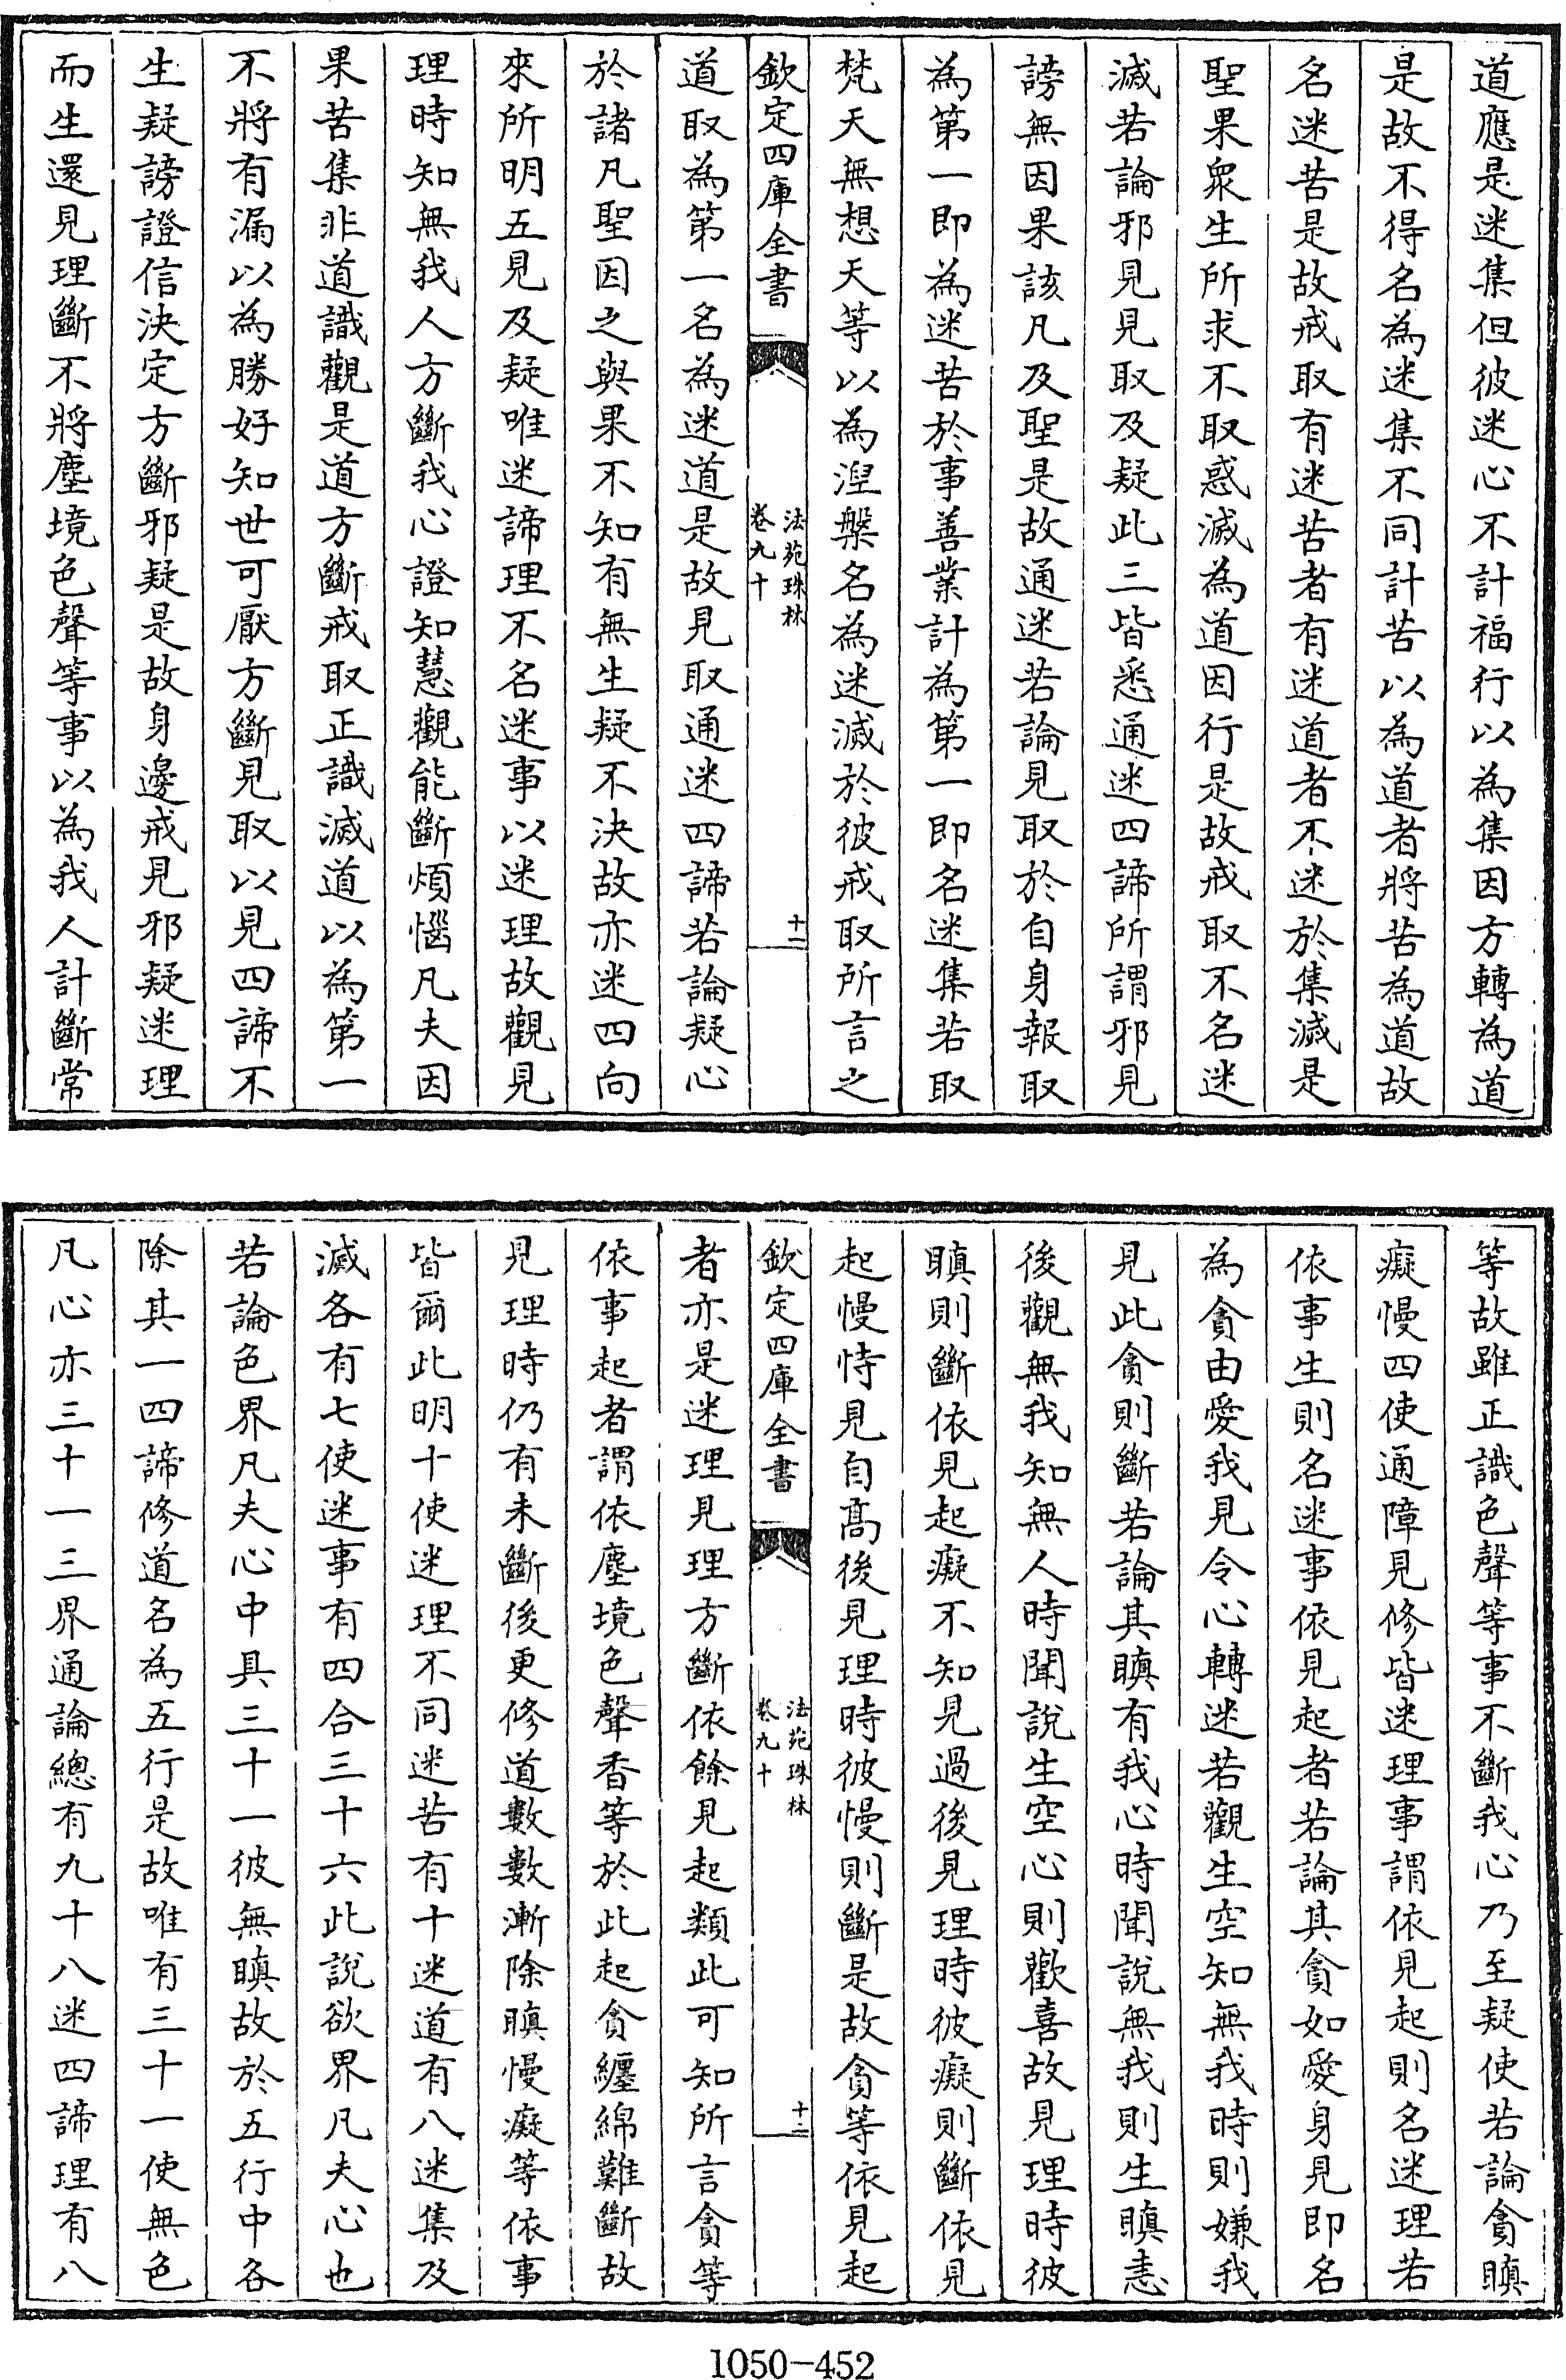 道應是迷集但彼迷心不計福行以為集因方轉為道
是故不得名為迷集不同計苦以為道者將苦為道故
名迷苦是故戒取有迷苦者有迷道者不迷於集滅是
聖果眾生所求不取惑滅為道因行是故戒取不名迷
滅若論邪見見取及疑此三皆悉通迷四諦所謂邪見
謗無因果該凡及聖是故通迷若論見取於自身報取
為第一即為迷苦於事善業計為第一即名迷集若取
梵天無想天等以為涅槃名為迷滅於彼戒取所言之
欽定四庫全書
法苑珠林
卷九十
十一
道取為第一名為迷道是故見取通迷四諦若論疑心
於諸凡聖因之與果不知有無生疑不決故亦迷四向
來所明五見及疑唯迷諦理不名迷事以迷理故觀見
理時知無我人方斷我心證知慧觀能斷煩惱凡夫因
果苦集非道識觀是道方斷戒取正識滅道以為第一
不將有漏以為勝好知世可厭方斷見取以見四諦不
生疑謗證信決定方斷邪疑是故身邊戒見邪疑迷理
而生還見理斷不將塵境色聲等事以為我人計斷常
等故雖正識色聲等事不斷我心乃至疑使若論貪瞋
癡慢四使通障見修皆迷理事謂依見起則名迷理若
依事生則名迷事依見起者若論其貪如愛身見即名
為貪由愛我見令心轉迷若觀生空知無我時則嫌我
見此貪則斷若論其瞋有我心時聞說無我則生瞋恚
後觀無我知無人時聞說生空心則歡喜故見理時彼
瞋則斷依見起癡不知見過後見理時彼癡則斷依見
起慢恃見自高後見理時彼慢則斷是故貪等依見起
欽定四庫全書
法苑珠林
卷九十
十二
者亦是迷理見理方斷依餘見起類此可知所言貪等
依事起者謂依塵境色聲香等於此起貪纏綿難斷故
見理時仍有未斷後更修道數數漸除瞋慢癡等依事
皆爾此明十使迷理不同迷苦有十迷道有八迷集及
滅各有七使迷事有四合三十六此說欲界凡夫心也
若論色界凡夫心中具三十一彼無瞋故於五行中各
除其一四諦修道名為五行是故唯有三十一使無色
凡心亦三十一三界通論總有九十八迷四諦理有八
1050-452